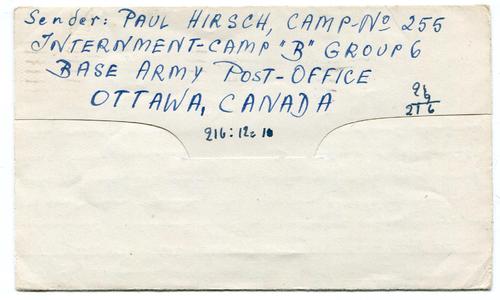 Sender: PAUL HIRSCH, CAMP-No 255
INTERNMENT-CAMP "B" GROUP 6
BASE ARMY POST-OFFICE
OTTAWA, CANADA
216:12=18